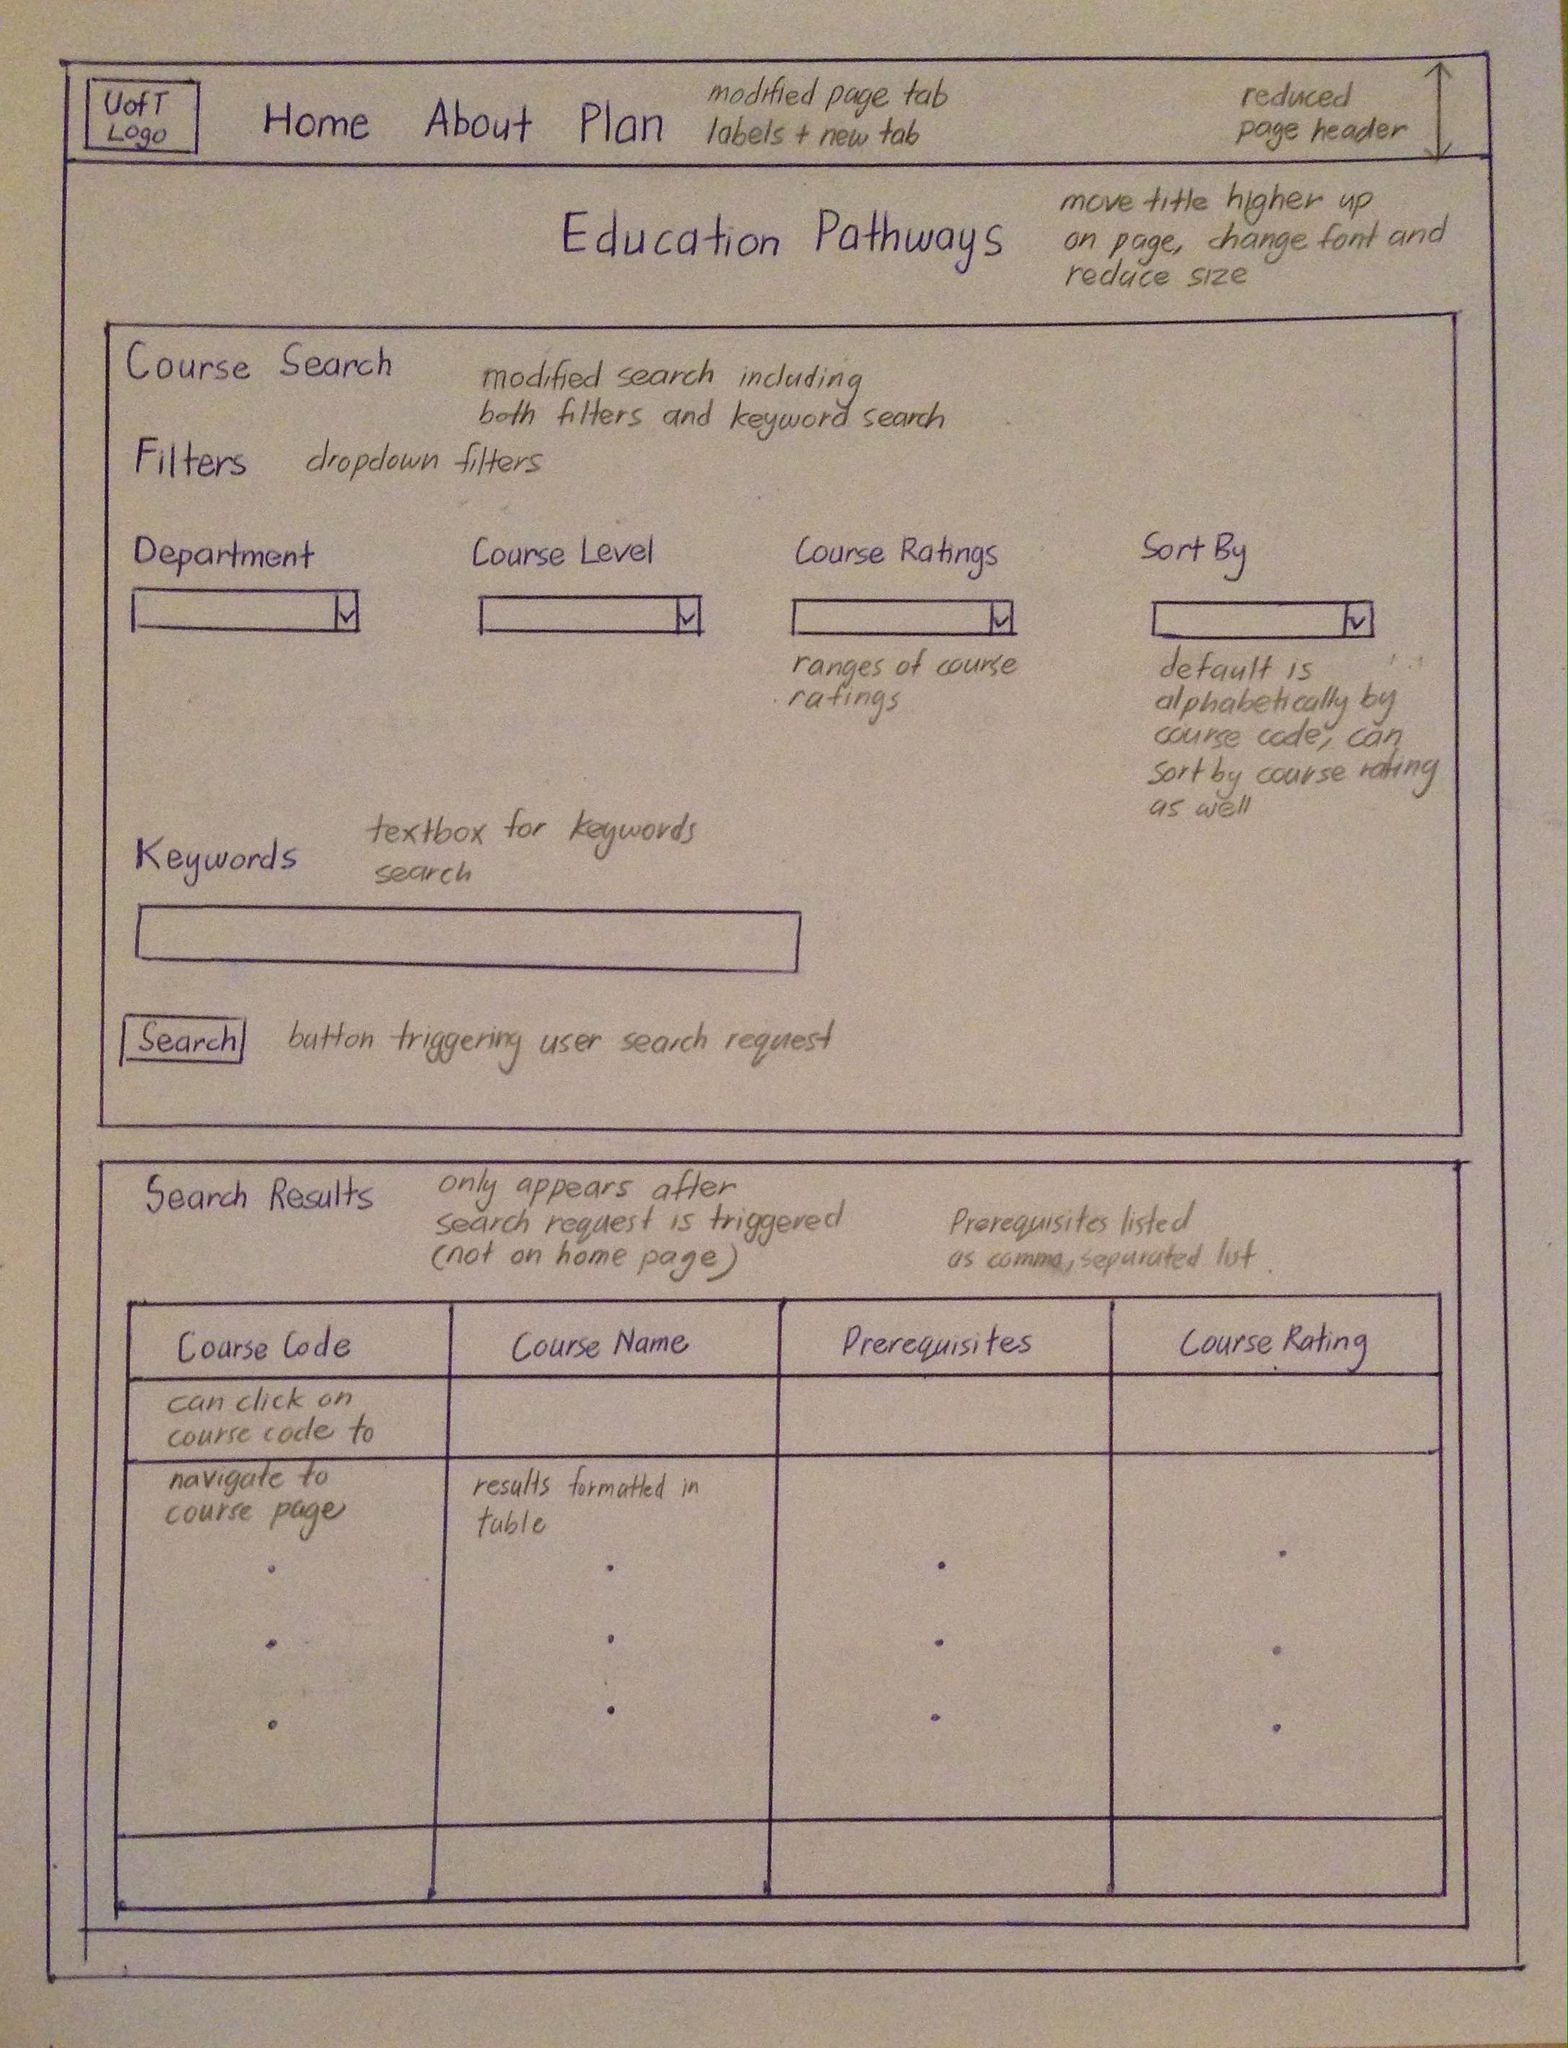 UofT
Logo
Home About Plan
modified page tab
labels + new tab
reduced
page header
Education Pathways
move title higher up
on page, change font and
reduce size
Course Search
modified search including
both filters and keyword search
Filters
dropdown filters
Department
Course Level
Course Ratings
Sort By
ranges of course
ratings
default is
alphabetically by
course code, can
sort by course rating
as well
Keywords
textbox for keywords
search
Search
button triggering user search request
Search Results
only appears after
search request is triggered
(not on home page)
Prerequisites listed
as comma, separated list
Course Code
Course Name
Prerequisites
Course Rating
can click on
course code to
navigate to
course page
results formatted in
table